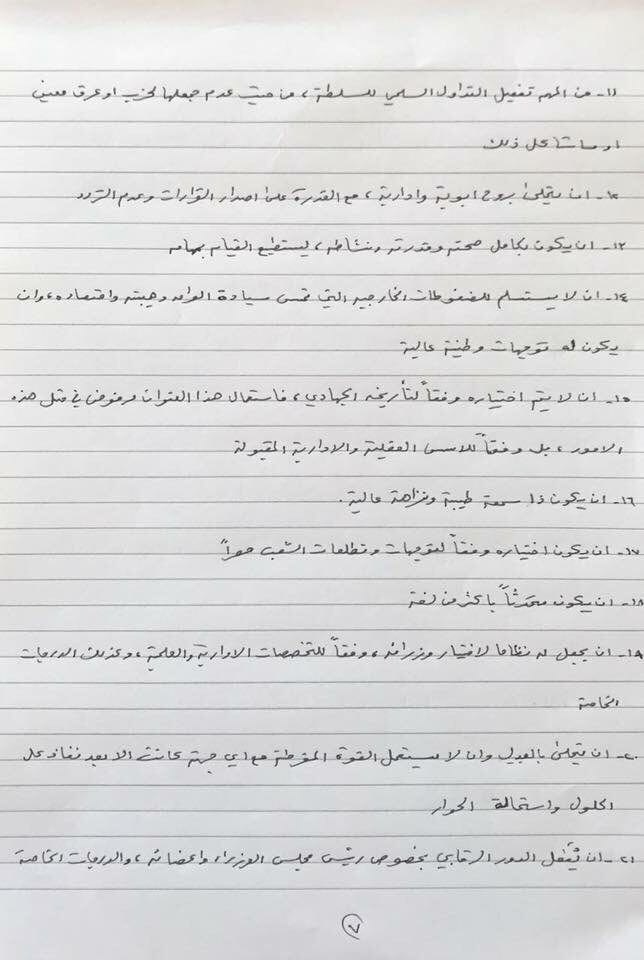 ١١- من المهم تفعيل التداول السلمي للسلطة ، من حيث عدم جعلها لحزب او عرق معين
او ما شاكل ذلك
١٢- ان يتحلى بروح ابوية وادارية ، مع القدرة على اصدار القرارات وعدم التردد
١٣- ان يكون بكامل صحته وقدرته ونشاطه ، ليستطيع القيام بمهامه
١٤- ان لا يستسلم للضغوطات الخارجيه التي تمس سيادة العراق وهيبته واقتصاده ، وان
يكون له توجهات وطنية عالية
١٥- ان لا يتم اختياره وفقاً لتأريخه الجهادي ، فاستعمال هذا العنوان مرفوض في مثل هذه
الامور ، بل وفقاً للاسس العقلية والادارية المقبولة
١٦- ان يكون ذا سمعة طيبة ونزاهة عالية .
١٧- ان يكون اختياره وفقاً لتوجهات وتطلعات الشعب حصراً
١٨- ان يكون متحدثاً باكثر من لغة
١٩- ان يجعل له نظاما لاختيار وزرائه ، وفقاً للتخصصات الادارية والعلمية ، وكذلك الدرجات
الخاصة
٢٠- ان يتحلى بالعدل وان لا يستعمل القوة المفرطة مع اي جهة كانت الا بعد نفاذ كل
الحلول واستحالة الحوار
٢١- ان يُفعّل الدور الرقابي بخصوص رئيس مجلس الوزراء واعضائه ، والدرجات الخاصة
٧